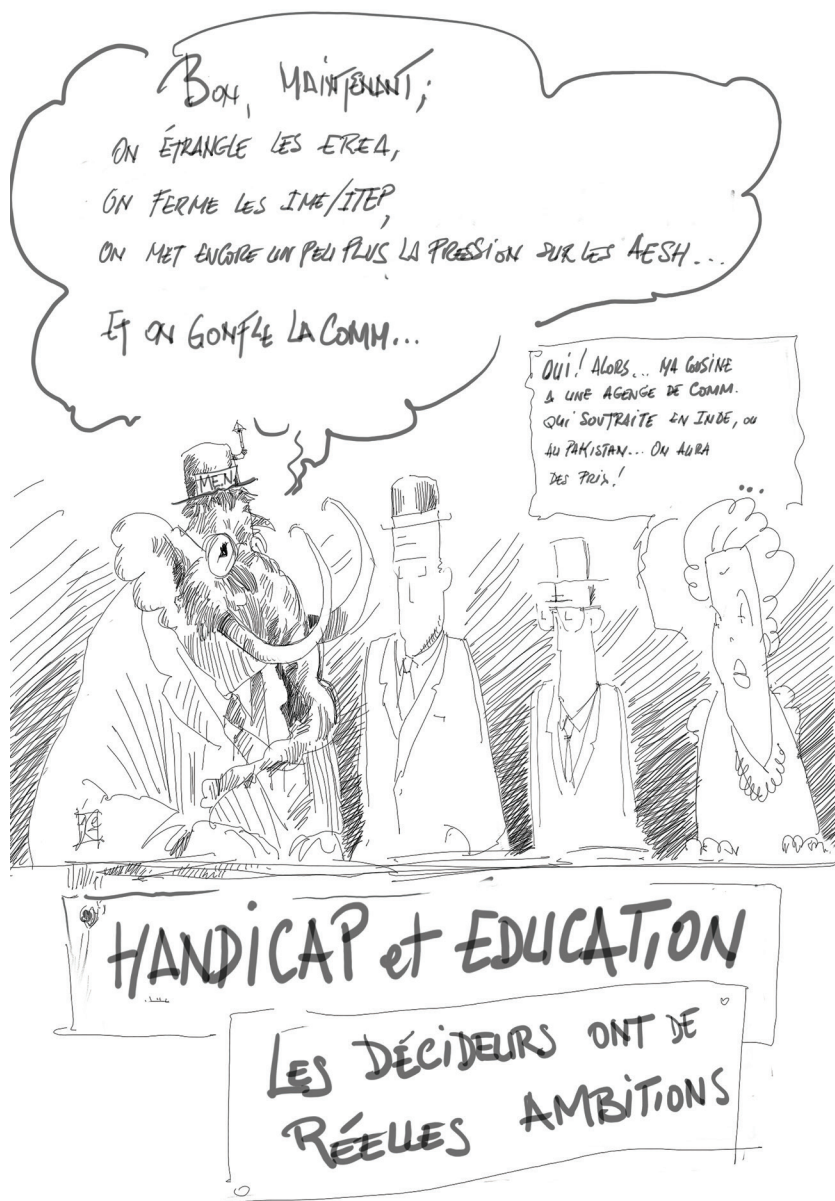 BON, MAINTENANT;
ON ÉTRANGLE LES EREA,
ON FERME LES IME/ITEP,
ON MET ENCORE UN PEU PLUS LA PRESSION SUR LES AESH...
ET ON GONFLE LA COMM...
OUI! ALORS... MA COUSINE
A UNE AGENGE DE COMM.
QUI SOUTRAITE EN INDE, OU
AU PAKISTAN... ON AURA
DES PRIX!
...
M.E.N
HANDICAP et EDUCATION
LES DÉCIDEURS ONT DE
RÉELLES AMBITIONS